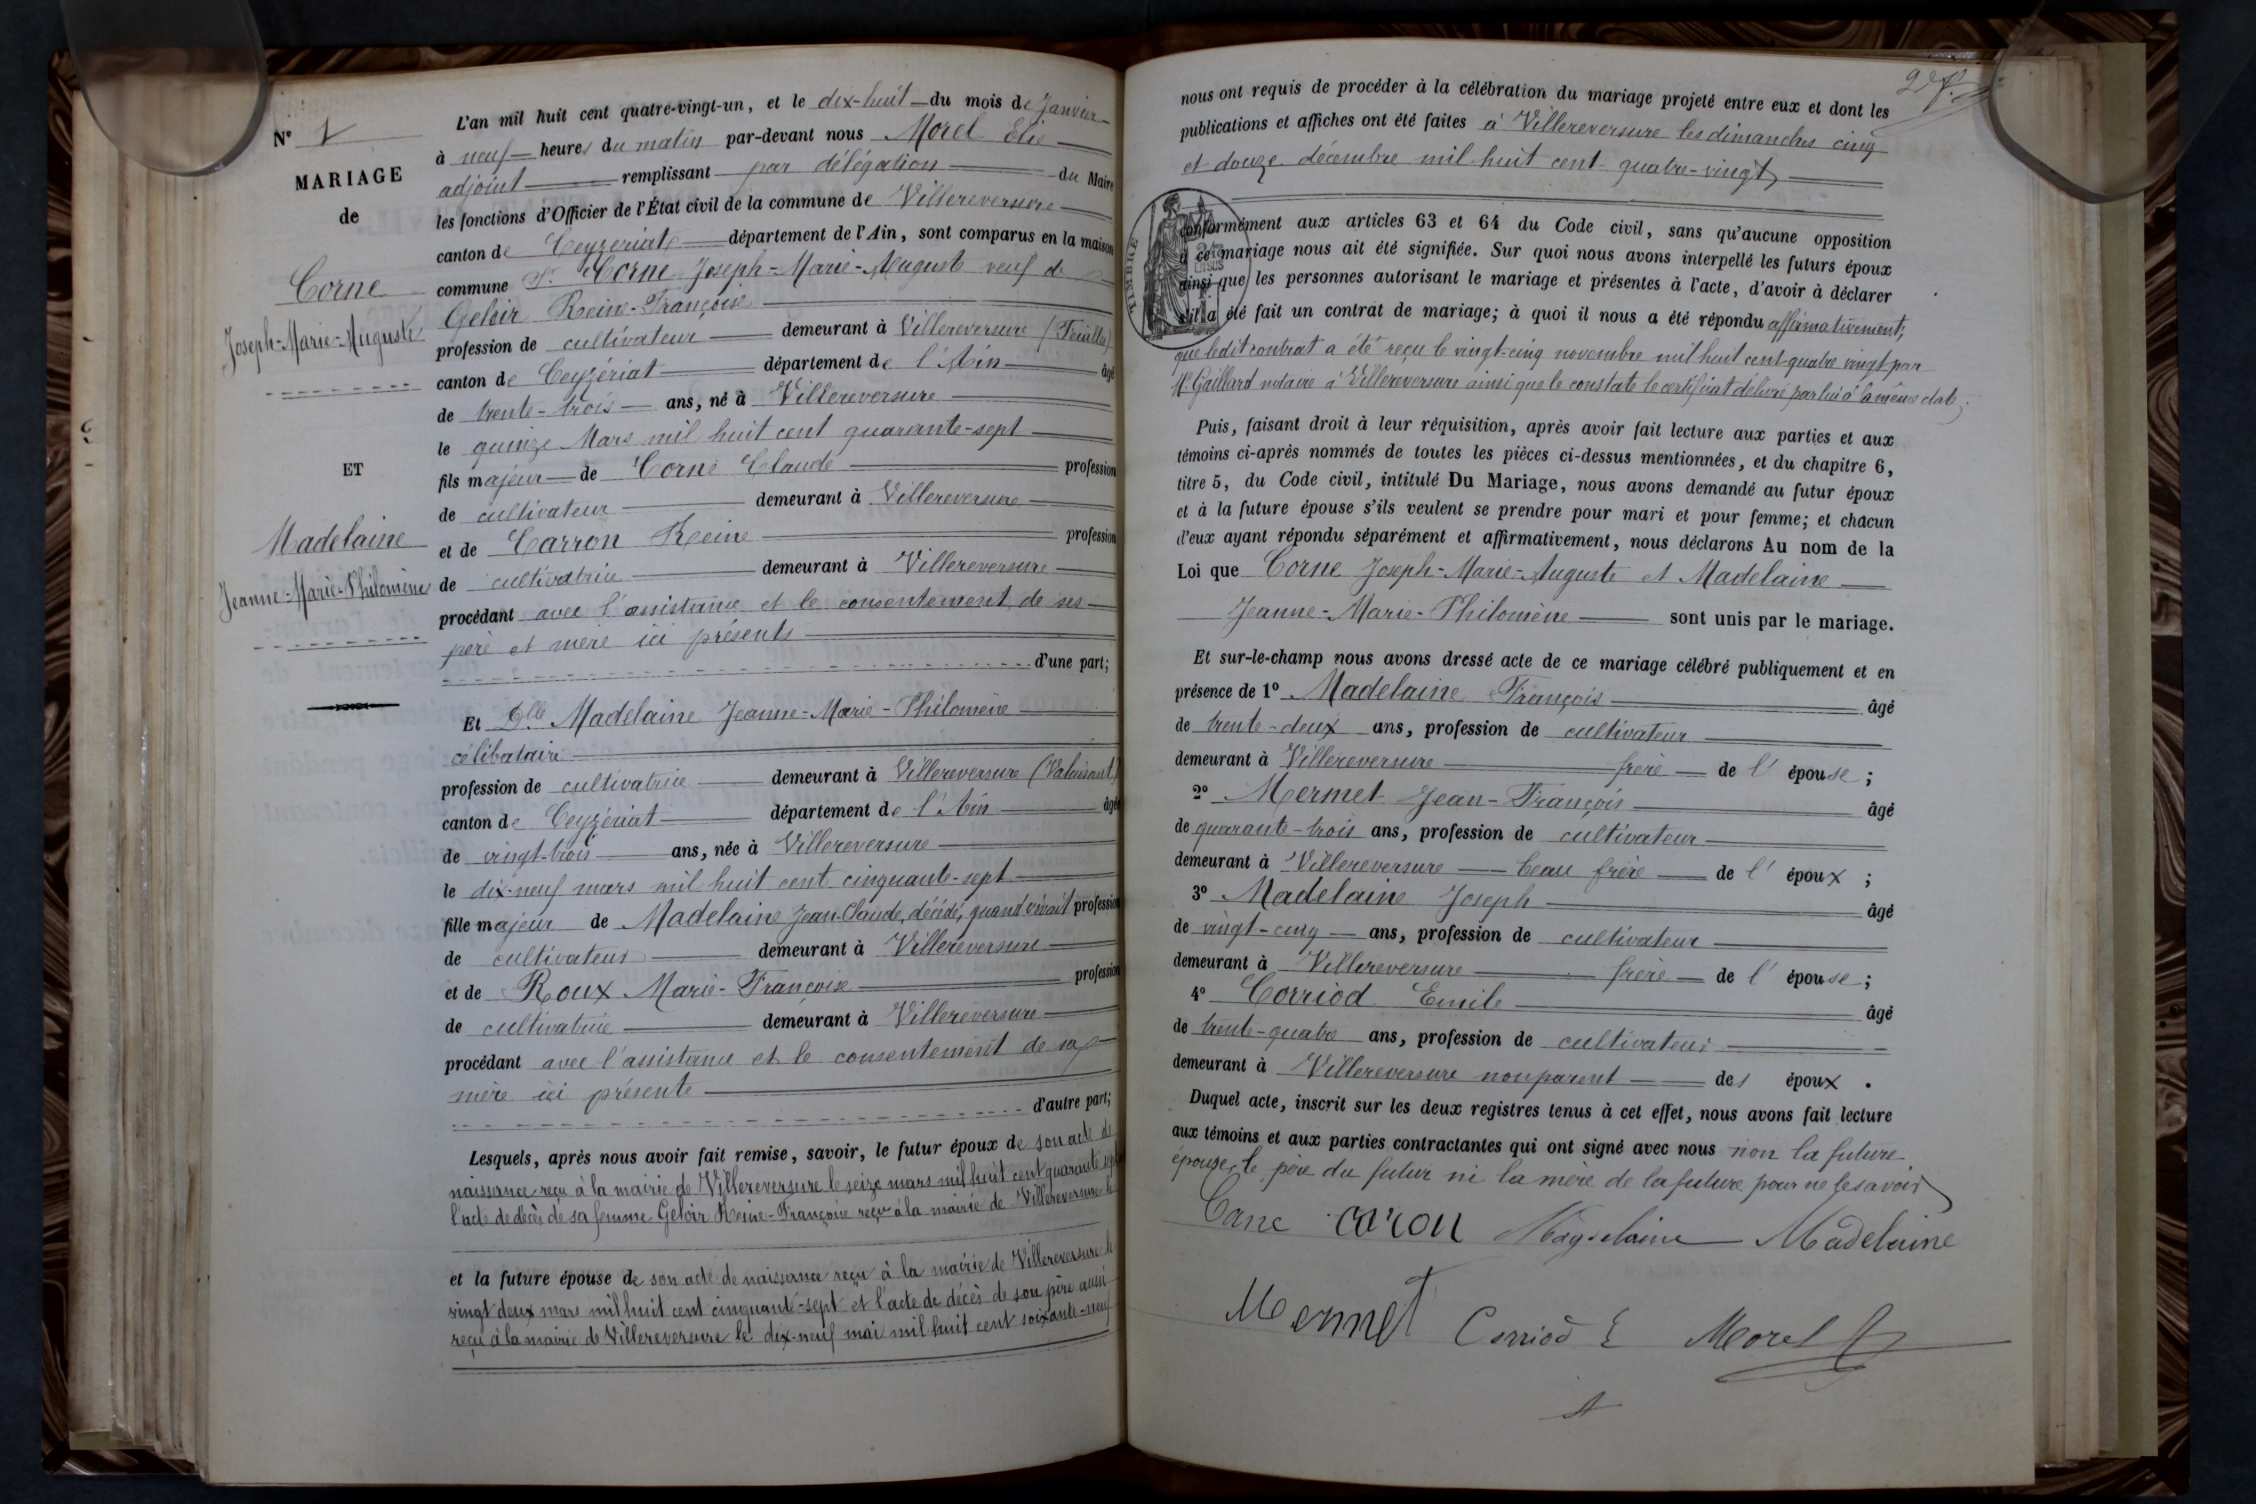 N° 1
MARIAGE
de
Corne
Joseph-Marie-Auguste
ET
Madelaine
Jeanne-Marie-Philomène
L'an mil huit cent quatre-vingt-un, et le dix-huit du mois de Janvier
à neuf heures du matin par-devant nous Morel Elie
adjoint remplissant par délégation du Maire
les fonctions d'Officier de l'État civil de la commune de Villereversure
canton de Ceyzeriat département de l'Ain, sont comparus en la maison
commune Sr Corne Joseph-Marie-Auguste veuf de
Geloir Reine-Françoise
profession de cultivateur demeurant à Villereversure
canton de Ceyzériat département de l'Ain âgé
de trente-trois ans, né à Villereversure
le quinze Mars mil huit cent quarante-sept
fils majeur de Corne Claude profession
de cultivateur demeurant à Villereversure
et de Carron Reine profession
de cultivatrice demeurant à Villereversure
procédant avec l'assistance et le consentement de ses
père et mère ici présents
d'une part;
Et Dlle Madelaine Jeanne-Marie-Philomène
célibataire
profession de cultivatrice demeurant à Villereversure
canton de Ceyzériat département de l'Ain âgée
de vingt-trois ans, née à Villereversure
le dix-neuf mars mil huit cent cinquante-sept
fille majeur de Madelaine Jean-Claude, décédé, quand vivait profession
de cultivateur demeurant à Villereversure
et de Roux Marie-Françoise profession
de cultivatrice demeurant à Villereversure
procédant avec l'assistance et le consentement de sa
mère ici présente
d'autre part;
Lesquels, après nous avoir fait remise, savoir, le futur époux de son acte de
naissance reçu à la mairie de Villereversure le seize mars mil huit cent quarante sept
l'acte de décès de sa femme Geloir Reine-Françoise reçu à la mairie de Villereversure le
et la future épouse de son acte de naissance reçu à la mairie de Villereversure le
vingt deux mars mil huit cent cinquante-sept et l'acte de décès de son père aussi
reçu à la mairie de Villereversure le dix-neuf mai mil huit cent soixante-neuf
nous ont requis de procéder à la célébration du mariage projeté entre eux et dont les
publications et affiches ont été faites à Villereversure les dimanches cinq
et douze décembre mil huit cent quatre-vingt
TIMBRE
conformément aux articles 63 et 64 du Code civil, sans qu'aucune opposition
à ce mariage nous ait été signifiée. Sur quoi nous avons interpellé les futurs époux
ainsi que les personnes autorisant le mariage et présentes à l'acte, d'avoir à déclarer
s'il a été fait un contrat de mariage; à quoi il nous a été répondu affirmativement,
que ledit contrat a été reçu le vingt-cinq novembre mil huit cent quatre vingt par
Me Gaillard notaire à Villereversure ainsi que le constate le certificat délivré par lui à la même date.
Puis, faisant droit à leur réquisition, après avoir fait lecture aux parties et aux
témoins ci-après nommés de toutes les pièces ci-dessus mentionnées, et du chapitre 6,
titre 5, du Code civil, intitulé Du Mariage, nous avons demandé au futur époux
et à la future épouse s'ils veulent se prendre pour mari et pour femme; et chacun
d'eux ayant répondu séparément et affirmativement, nous déclarons Au nom de la
Loi que Corne Joseph-Marie-Auguste et Madelaine
Jeanne-Marie-Philomène sont unis par le mariage.
Et sur-le-champ nous avons dressé acte de ce mariage célébré publiquement et en
présence de 1° Madelaine François âgé
de trente-deux ans, profession de cultivateur
demeurant à Villereversure frère de l'épouse;
2° Mermet Jean-François âgé
de quarante-trois ans, profession de cultivateur
demeurant à Villereversure beau frère de l'époux;
3° Madelaine Joseph âgé
de vingt-cinq ans, profession de cultivateur
demeurant à Villereversure frère de l'épouse;
4° Corriod Emile âgé
de trente-quatre ans, profession de cultivateur
demeurant à Villereversure non parent des époux.
Duquel acte, inscrit sur les deux registres tenus à cet effet, nous avons fait lecture
aux témoins et aux parties contractantes qui ont signé avec nous non la future
épouse, le père du futur ni la mère de la future pour ne le savoir
caron Madelaine
Mermet Corriod E Morel